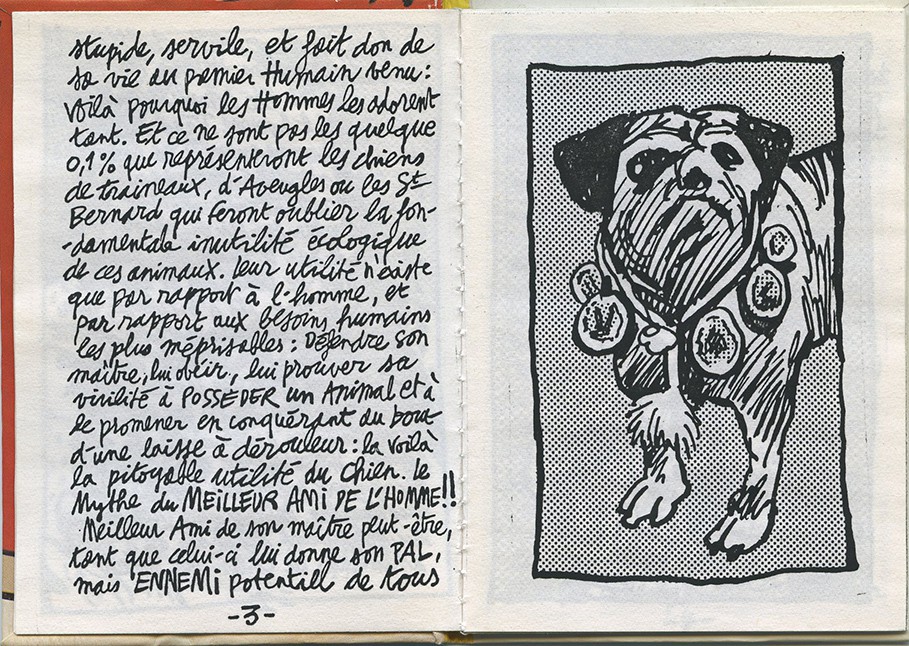 stupide, servile, et fait don de
sa vie au premier Humain venu :
voilà pourquoi les Hommes les adorent
tant. Et ce ne sont pas les quelque
0,1% que représenteront les chiens
de traineaux, d'Aveugles ou les St
Bernard qui feront oublier la fon-
-damentale inutilité écologique
de ces animaux. leur utilité n'existe
que par rapport à l'homme, et
par rapport aux besoins humains
les plus méprisables : Défendre son
maître, lui obéir, lui prouver sa
virilité à POSSÉDER un Animal et à
le promener en conquérant au bout
d'une laisse à dérouleur : la voilà
la pitoyable utilité du Chien. Le
Mythe du MEILLEUR AMI DE L'HOMME!!
Meilleur Ami de son maître peut-être,
tant que celui-ci lui donne son PAL,
mais ENNEMI potentiel de tous
-3-